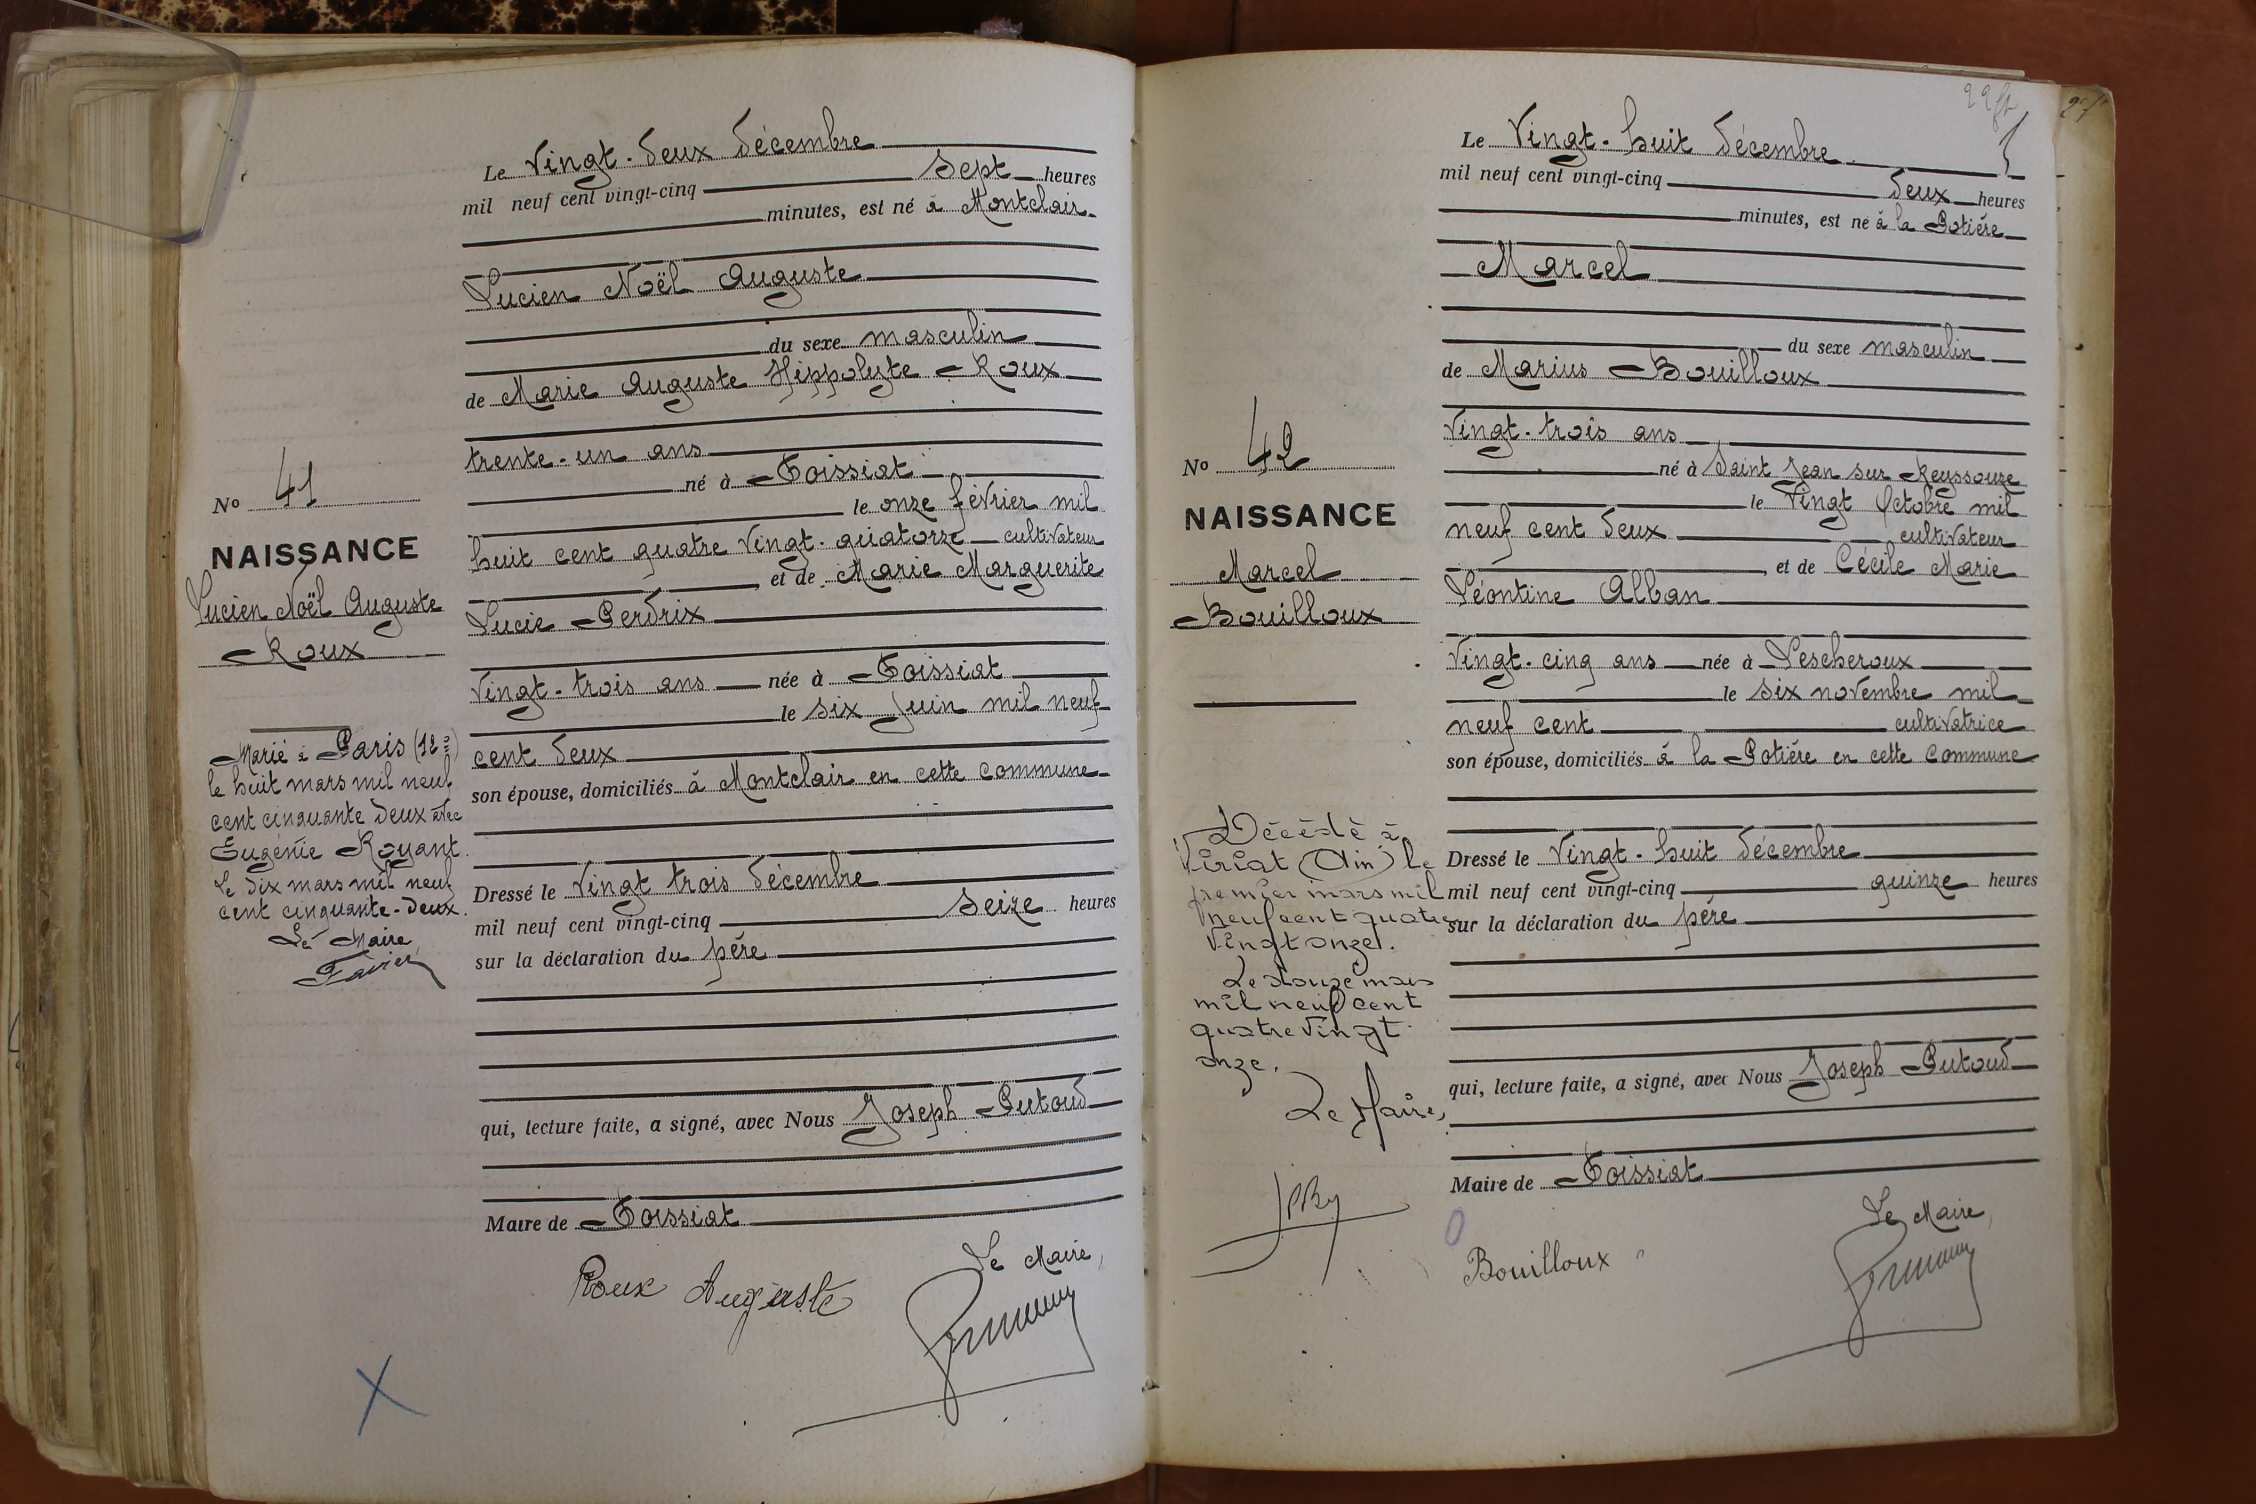 Le Vingt-deux décembre
mil neuf cent vingt-cinq sept heures
minutes, est né à Montclair
Lucien Noël Auguste
du sexe masculin
de Marie Auguste Hippolyte Roux
trente-un ans
né à Foissiat
le onze février mil
huit cent quatre vingt-quatorze cultivateur
et de Marie Marguerite
Lucie Perdrix
Vingt-trois ans née à Foissiat
le six juin mil neuf
cent deux
son épouse, domiciliés à Montclair en cette commune
Dressé le Vingt trois décembre
mil neuf cent vingt-cinq seize heures
sur la déclaration du père
qui, lecture faite, a signé, avec Nous Joseph Putoud
Maire de Foissiat
Le Maire,
Roux Auguste
No 41
NAISSANCE
Lucien Noël Auguste
Roux
Marié à Paris (12
le huit mars mil neuf
cent cinquante deux avec
Eugénie Royant.
Le dix mars mil neuf
cent cinquante-deux.
Le Maire,
Favier
Le Vingt-huit décembre
mil neuf cent vingt-cinq deux heures
minutes, est né à la Potière
Marcel
du sexe masculin
de Marius Bouilloux
Vingt-trois ans
né à Saint Jean sur Reyssouze
le Vingt Octobre mil
neuf cent deux cultivateur
et de Cécile Marie
Léontine Alban
Vingt-cinq ans née à Lescheroux
le six novembre mil
neuf cent cultivatrice
son épouse, domiciliés à la Potière en cette commune
Dressé le Vingt-huit décembre
mil neuf cent vingt-cinq quinze heures
sur la déclaration du père
qui, lecture faite, a signé, avec Nous Joseph Putoud
Maire de Foissiat
Le Maire,
Bouilloux
No 42
NAISSANCE
Marcel
Bouilloux
Décédé à
Viriat (Ain) le
premier mars mil
neuf cent quatre
vingt onze.
Le douze mars
mil neuf cent
quatre vingt
onze.
Le Maire,